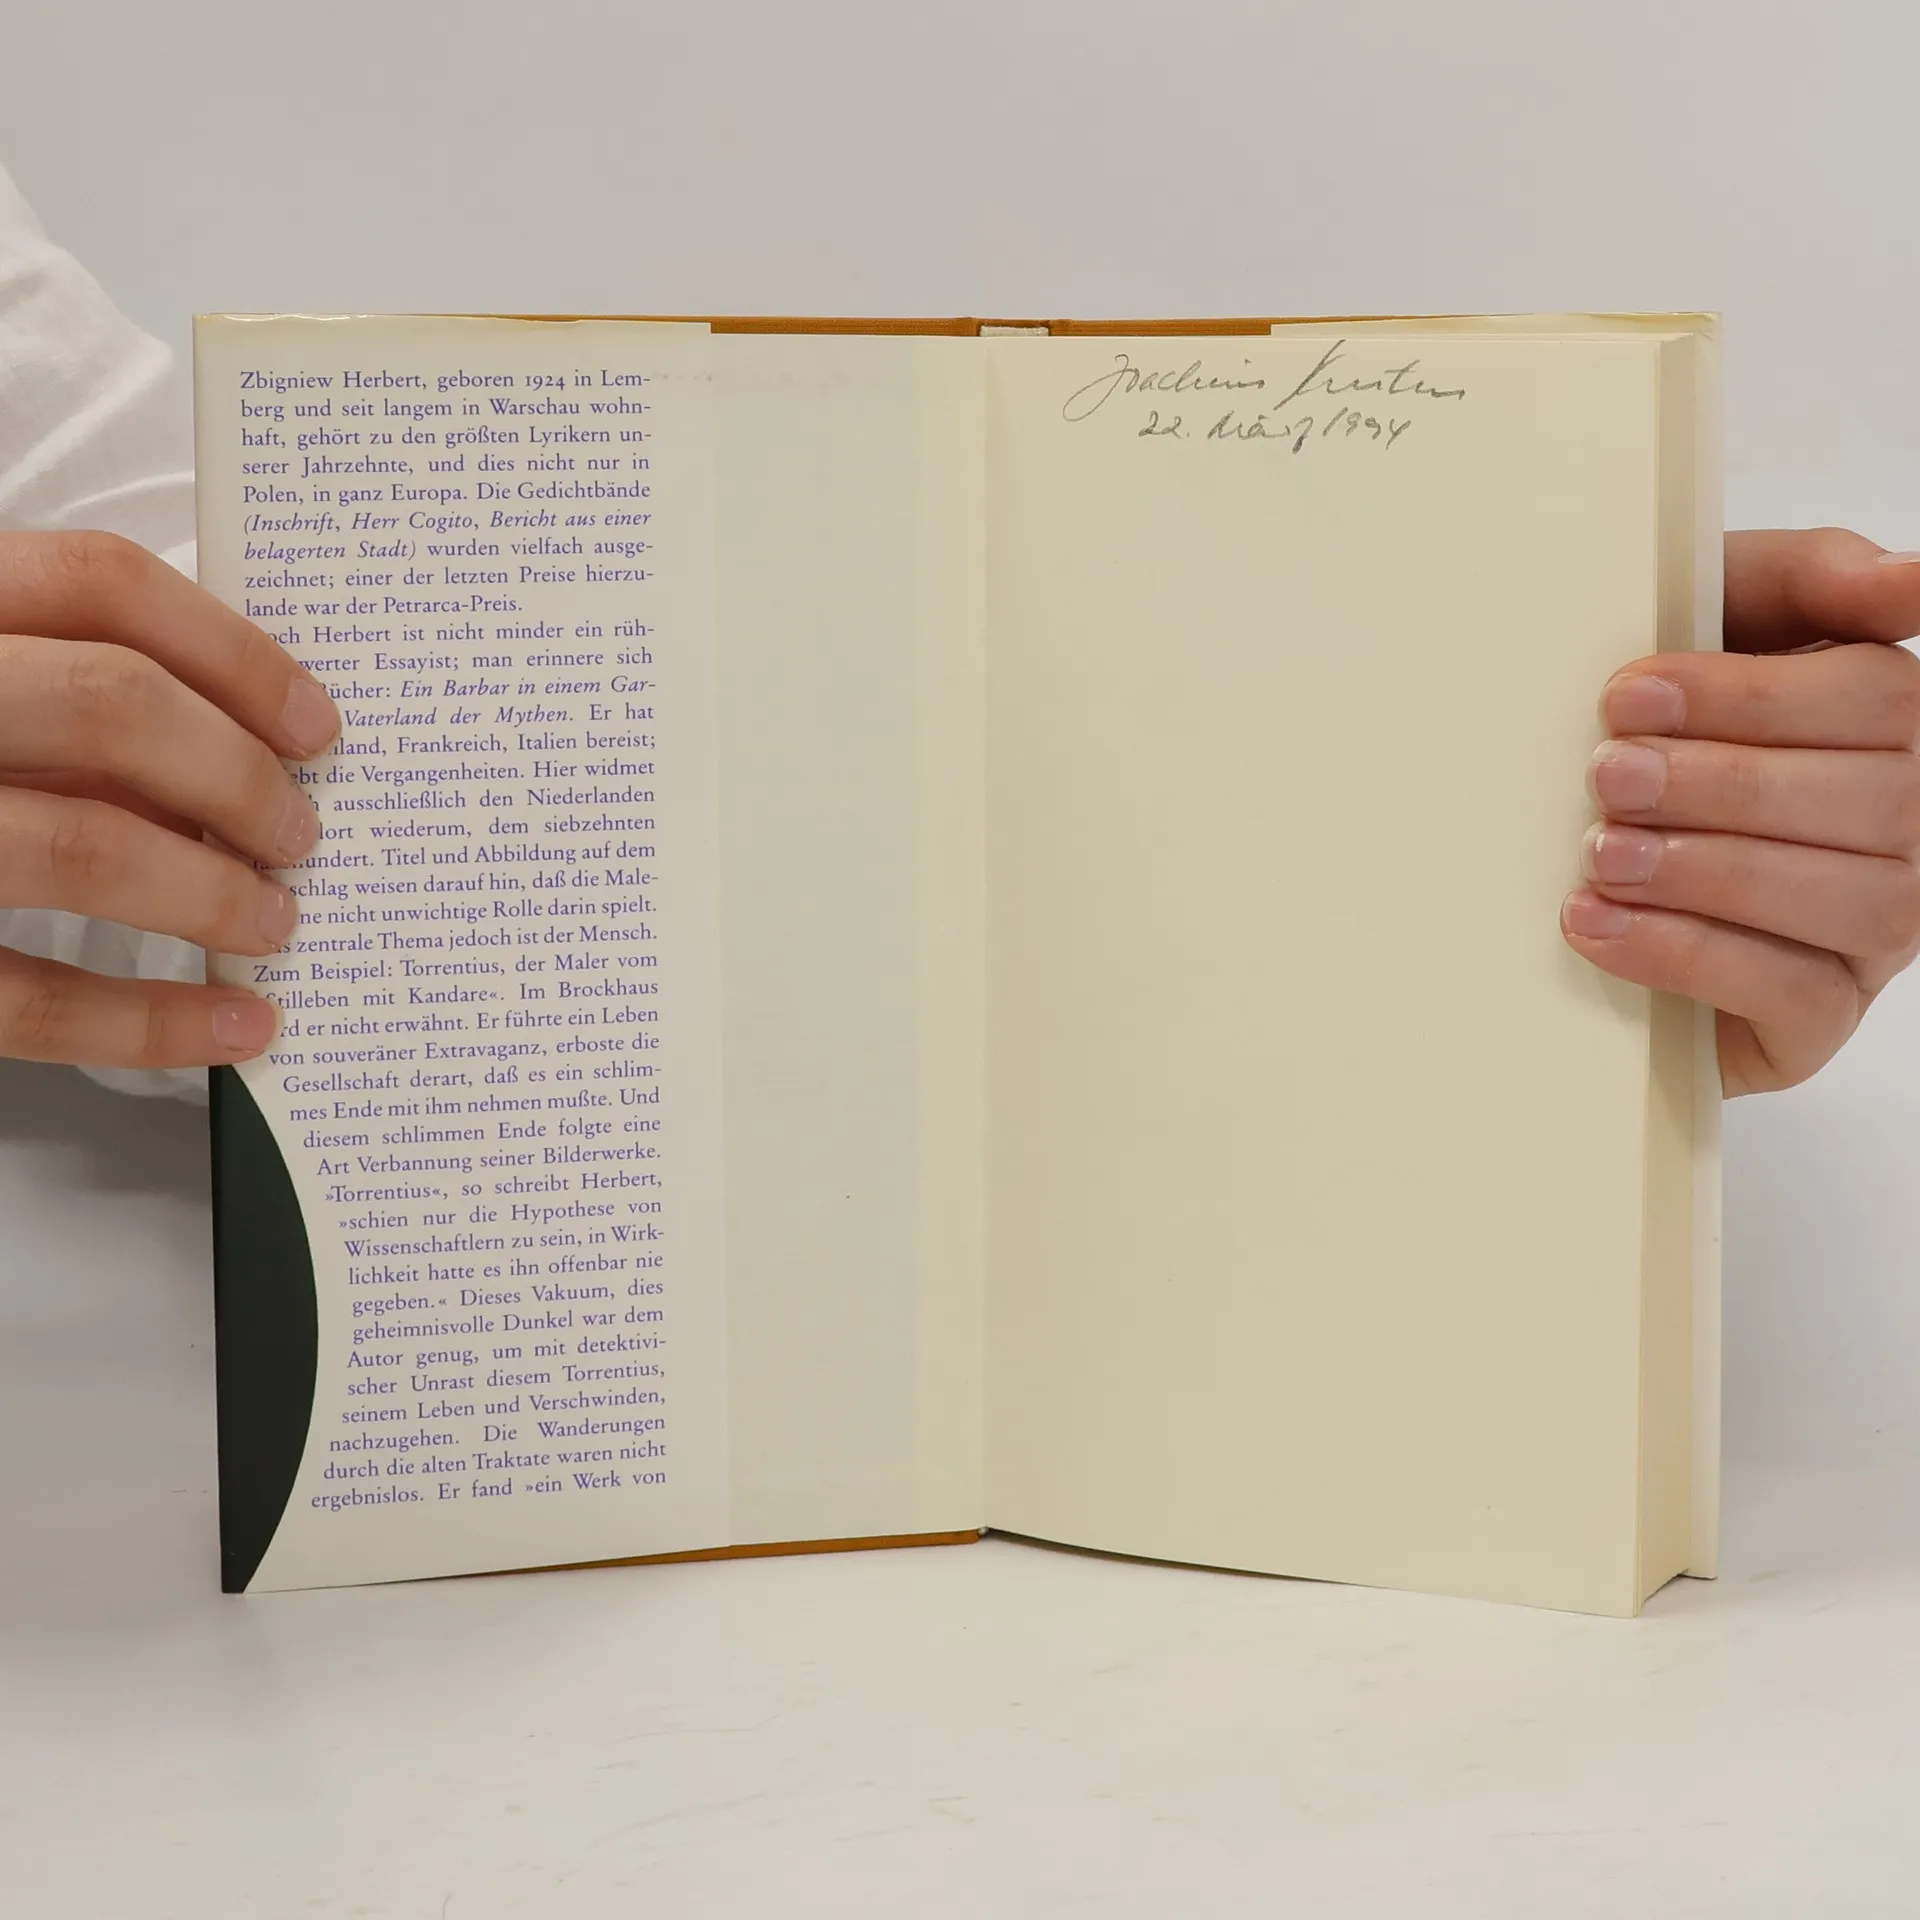 Zbigniew Herbert, geboren 1924 in Lem-
berg und seit langem in Warschau wohn-
haft, gehört zu den größten Lyrikern un-
serer Jahrzehnte, und dies nicht nur in
Polen, in ganz Europa. Die Gedichtbände
(Inschrift, Herr Cogito, Bericht aus einer
belagerten Stadt) wurden vielfach ausge-
zeichnet; einer der letzten Preise hierzu-
lande war der Petrarca-Preis.
och Herbert ist nicht minder ein rüh-
werter Essayist; man erinnere sich
Bücher: Ein Barbar in einem Gar-
Vaterland der Mythen. Er hat
land, Frankreich, Italien bereist;
ebt die Vergangenheiten. Hier widmet
h ausschließlich den Niederlanden
dort wiederum, dem siebzehnten
hundert. Titel und Abbildung auf dem
schlag weisen darauf hin, daß die Male-
ne nicht unwichtige Rolle darin spielt.
s zentrale Thema jedoch ist der Mensch.
Zum Beispiel: Torrentius, der Maler vom
Stilleben mit Kandare«. Im Brockhaus
rd er nicht erwähnt. Er führte ein Leben
von souveräner Extravaganz, erboste die
Gesellschaft derart, daß es ein schlim-
mes Ende mit ihm nehmen mußte. Und
diesem schlimmen Ende folgte eine
Art Verbannung seiner Bilderwerke.
»Torrentius«, so schreibt Herbert,
»schien nur die Hypothese von
Wissenschaftlern zu sein, in Wirk-
lichkeit hatte es ihn offenbar nie
gegeben.« Dieses Vakuum, dies
geheimnisvolle Dunkel war dem
Autor genug, um mit detektivi-
scher Unrast diesem Torrentius,
seinem Leben und Verschwinden,
nachzugehen. Die Wanderungen
durch die alten Traktate waren nicht
ergebnislos. Er fand »ein Werk von
Joachim
22. März 1994